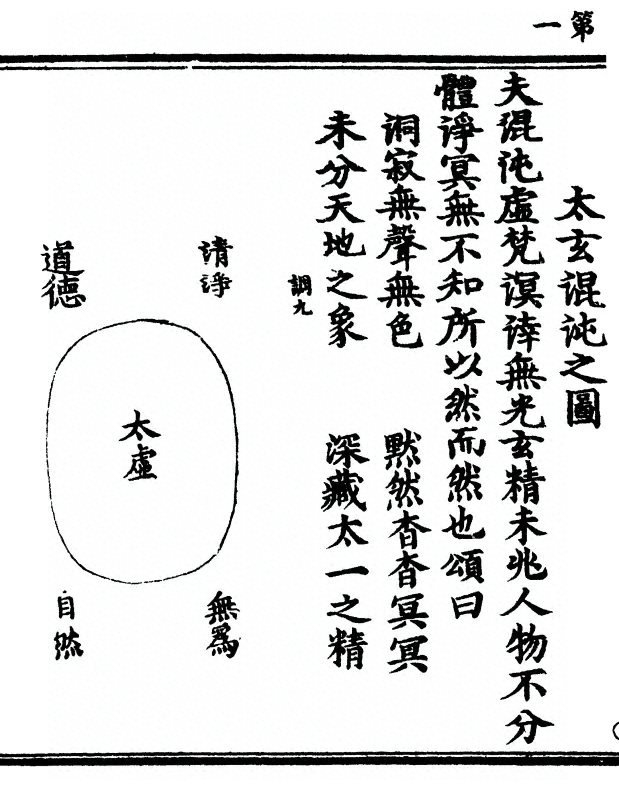 第一
太玄混沌之圖
夫混沌虛梵溟涬無光玄精未兆人物不分
體淨冥無不知所以然而然也頌曰
洞寂無聲無色　默然杳杳冥冥
未分天地之象　深藏太一之精
調九
清淨
無為
太虛
道德
自然